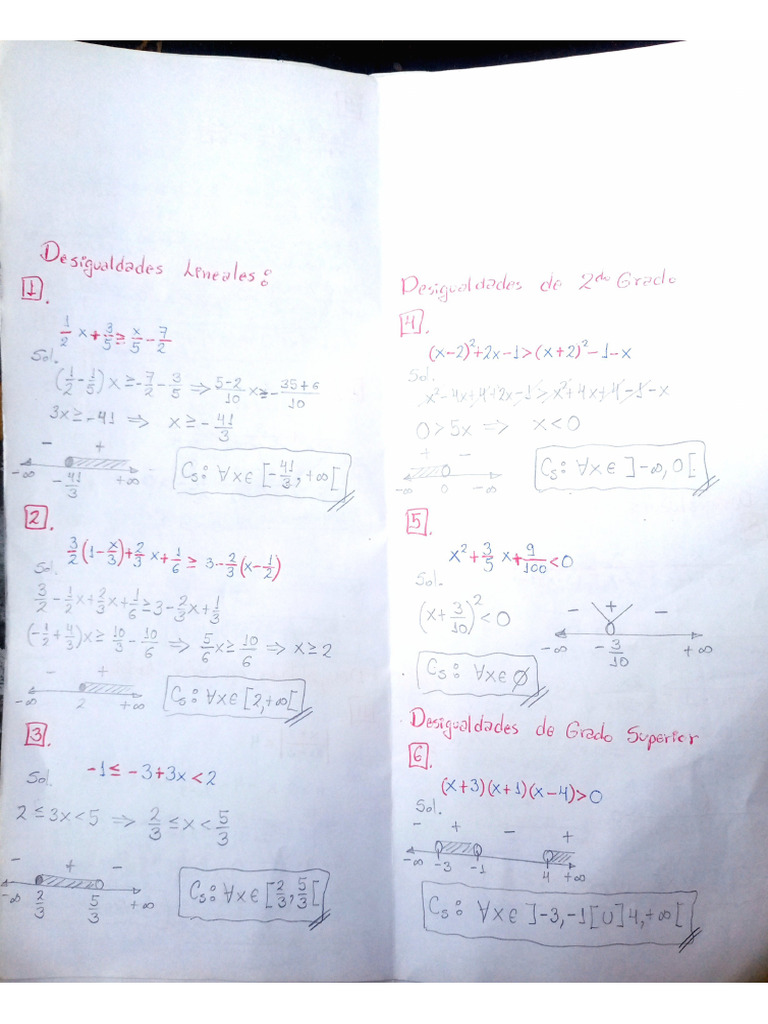 Desigualdades Lineales:
1.
1/2 x + 3/5 ≥ x/5 - 7/2
Sol.
(1/2 - 1/5)x ≥ -7/2 - 3/5 ⇒ 5-2/10 x ≥ - 35+6/10
3x ≥ -41 ⇒ x ≥ - 41/3
- +
-∞ -41/3 +∞
Cs: ∀x∈[-41/3, +∞[
2.
3/2(1-x/3)+2/3 x+1/6 ≥ 3-2/3(x-1/2)
Sol.
3/2 - 1/2x + 2/3x + 1/6 ≥ 3 - 2/3x + 1/3
(-1/2 + 4/3)x ≥ 10/3 - 10/6 ⇒ 5/6x ≥ 10/6 ⇒ x ≥ 2
- +
-∞ 2 +∞
Cs: ∀x∈[2,+∞[
3.
-1 ≤ -3+3x < 2
Sol.
2 ≤ 3x < 5 ⇒ 2/3 ≤ x < 5/3
- + -
-∞ 2/3 5/3 +∞
Cs: ∀x∈[2/3, 5/3[
Desigualdades de 2do Grado
4.
(x-2)²+2x-1>(x+2)²-1-x
Sol.
x²-4x+4+2x-1>x²+4x+4-1-x
0>5x ⇒ x<0
+ -
-∞ 0 -∞
Cs: ∀x∈]-∞,0[
5.
x²+3/5 x+9/100<0
Sol.
(x+3/10)²<0
- + -
-∞ -3/10 +∞
Cs: ∀x∈∅
Desigualdades de Grado Superior
6.
(x+3)(x+1)(x-4)>0
Sol.
- + - +
-∞ -3 -1 4 +∞
Cs: ∀x∈]-3,-1[U]4,+∞[